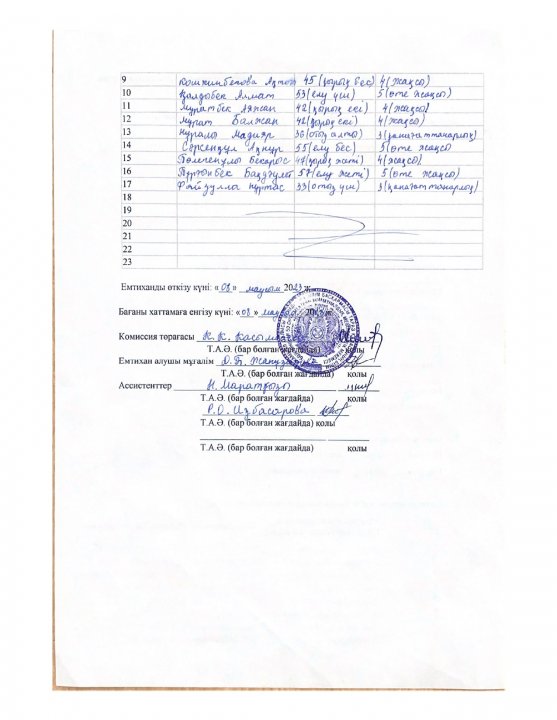 9 Кошкимбекова Ақтоты 45 (қырық бес) 4 (жақсы)
10 Қалдыбек Алмат 53 (елу үш) 5 (өте жақсы)
11 Мұратбек Аяжан 42 (қырық екі) 4 (жақсы)
12 Мұрат Балжан 42 (қырық екі) 4 (жақсы)
13 Нұрала Мадияр 36 (отыз алты) 3 (қанағаттанарлық)
14 Серсенқұл Ақнұр 55 (елу бес) 5 (өте жақсы
15 Төлегенұлы Бекарыс 47 (қырық жеті) 4 (жақсы)
16 Бақдәулет 57 (елу жеті) 5 (өте жақсы)
17 Файзулла Нұртас 33 (отыз үш) 3 (қанағаттанарлық)
18
19
20
21
22
23
Емтиханды өткізу күні: «08» маусым 2023 ж.
Бағаны хаттамаға енгізу күні: «08» 2023 ж.
Комиссия торағасы К. К.
Т.А.Ә. (бар болған жағдайда) қолы
Емтихан алушы мұғалім Ә.Б.
Т.А.Ә. (бар болған жағдайда) қолы
Ассистенттер Н. Маратқызы
Т.А.Ә. (бар болған жағдайда) қолы
Р.О. Избасарова
Т.А.Ә. (бар болған жағдайда) қолы
Т.А.Ә. (бар болған жағдайда) қолы